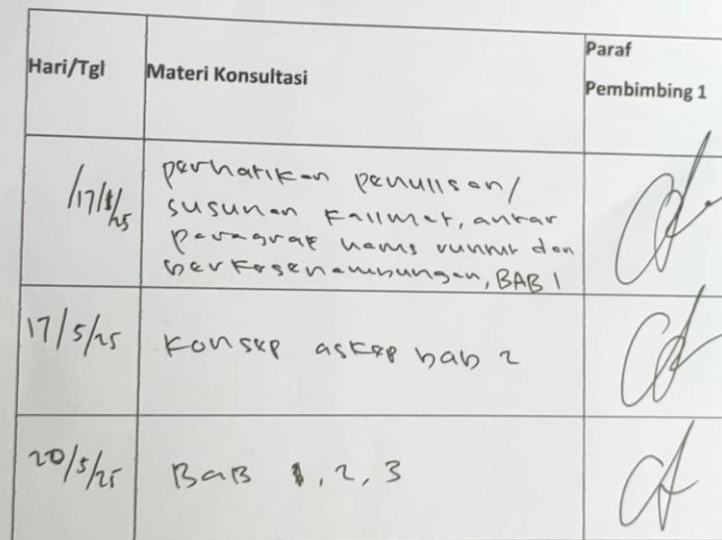 Hari/Tgl
Materi Konsultasi
Paraf
Pembimbing 1
perhatikan penulisan/
susunan kalimat, antar
paragrap harus runtut dan
berkesenambungan, BAB 1
17/5/25
Konsep askep bab 2
20/5/25
BaB 1, 2, 3